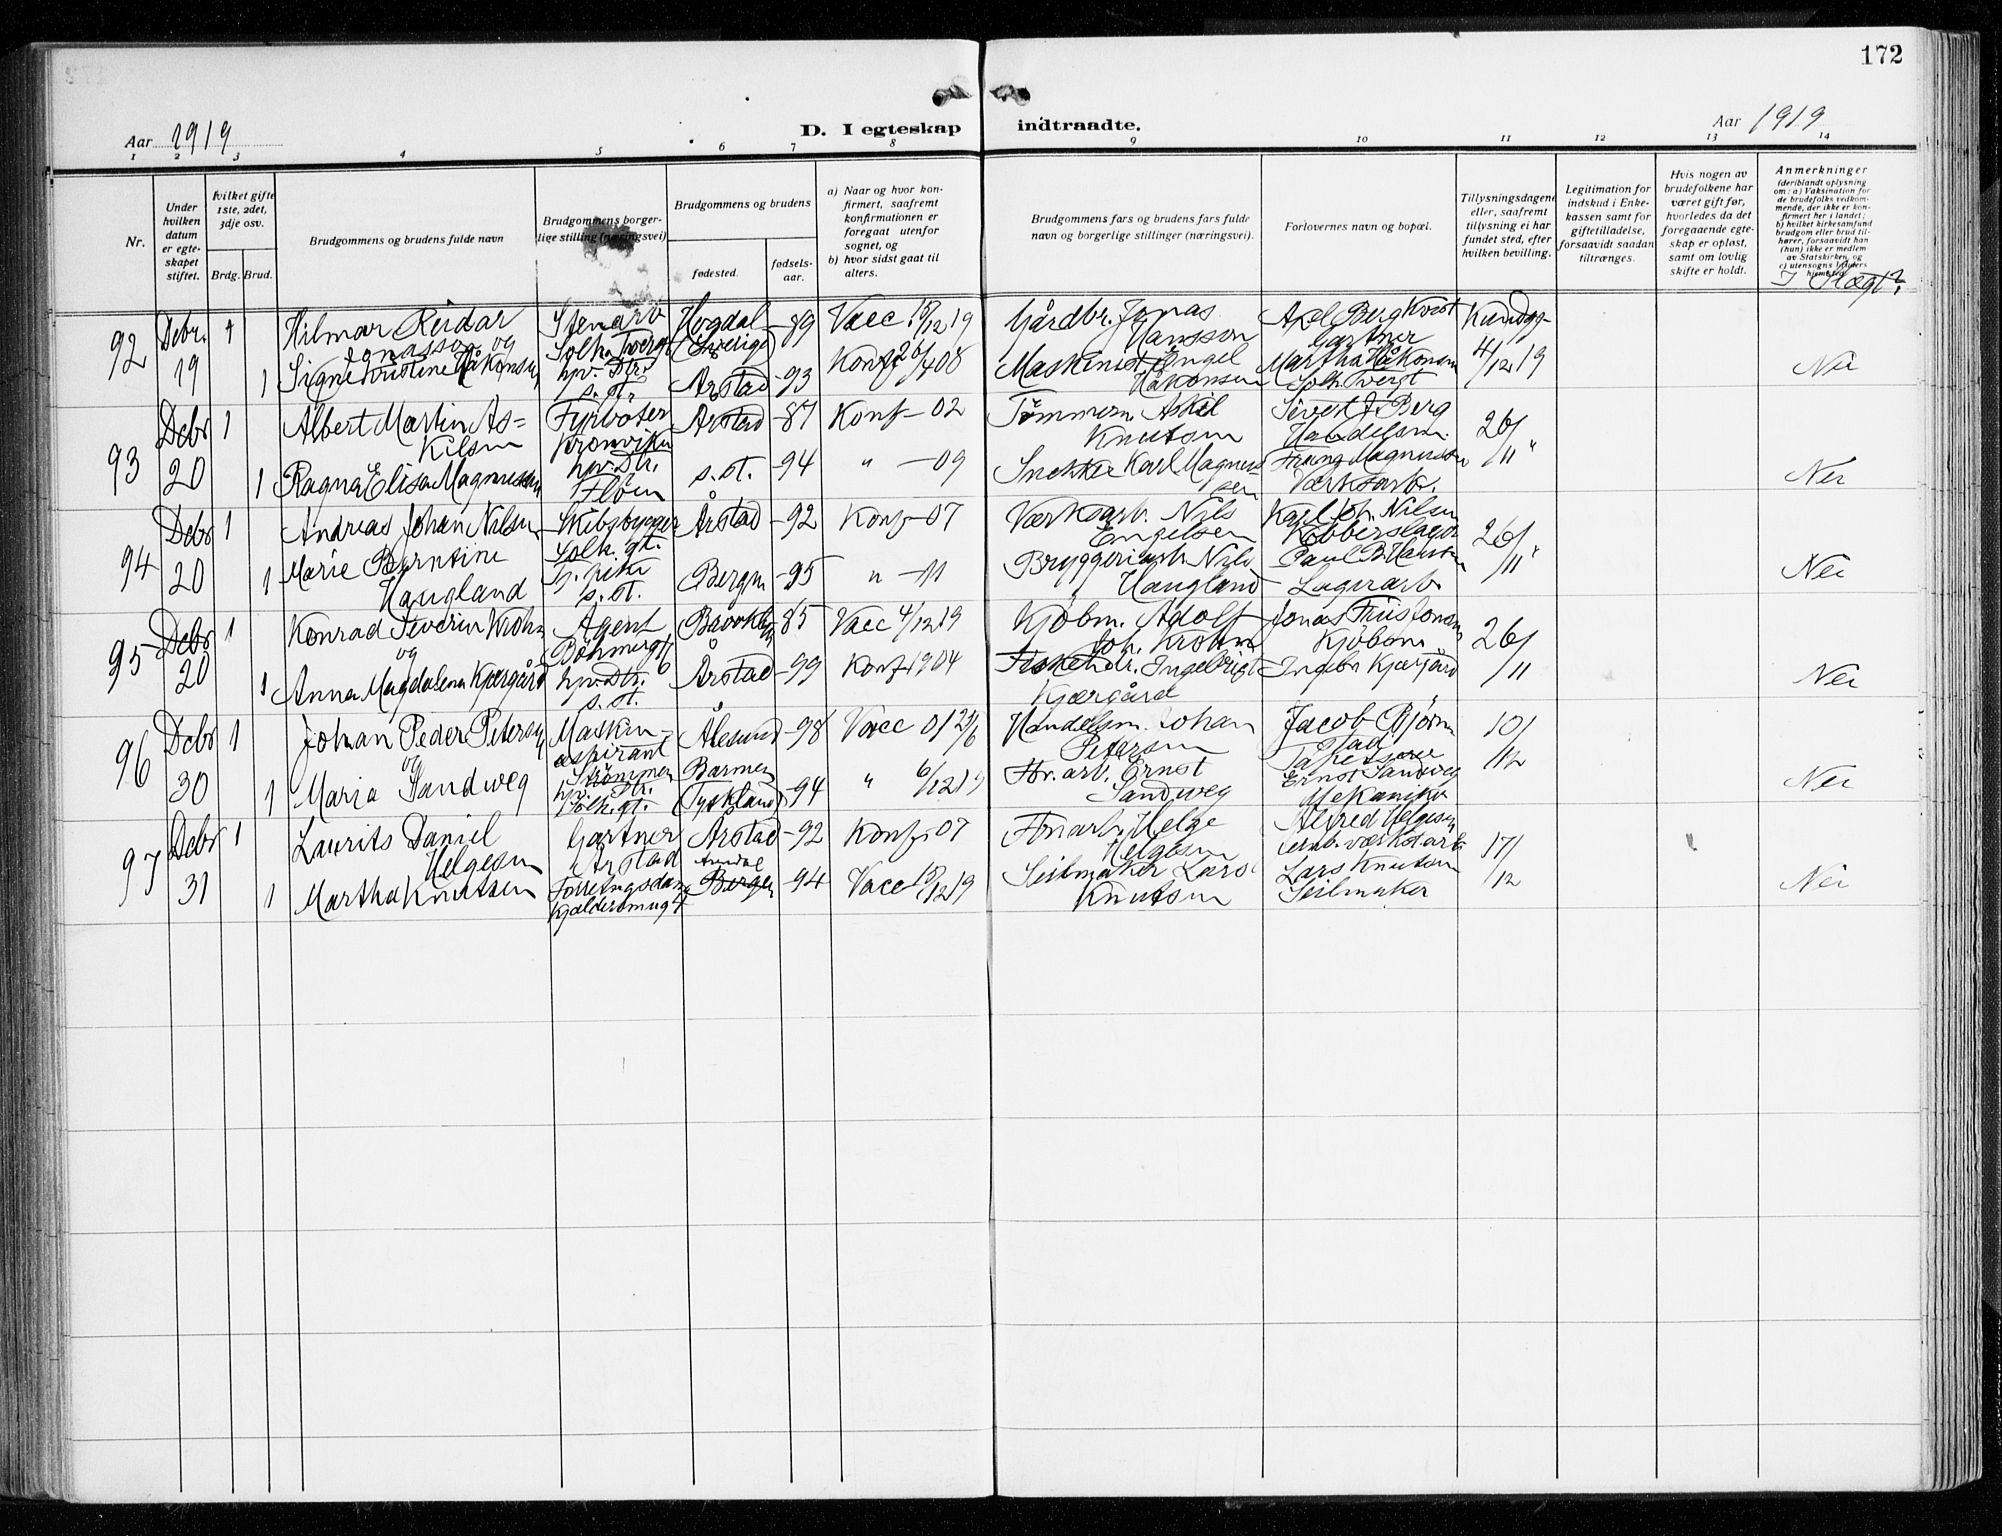 172
Aar 1919
D. I egteskap indtraadte.
Aar 1919
1 2 3 4 5 6 7 8 9 10 11 12 13 14
Nr.
Under hvilken datum er egte-skapet stiftet.
hvilket gifte 1ste, 2det, 3dje osv.
Brdg. Brud.
Brudgommens og brudens fulde navn
Brudgommens borger-lige stilling (næringsvei)
Brudgommens og brudens
fødested.
fødsels-aar.
a) Naar og hvor kon-firmert, saafremt konfirmationen er foregaat utenfor sognet, og
b) hvor sidst gaat til alters.
Brudgommens fars og brudens fars fulde navn og borgerlige stillinger (næringsvei).
Forlovernes navn og bopæl.
Tillysningsdagene eller, saafremt tillysning ei har fundet sted, efter hvilken bevilling.
Legitimation for indskud i Enke-kassen samt for giftetilladelse, forsaavidt saadan tiltrænges.
Hvis nogen av brudefolkene har været gift før, hvorledes da det foregaaende egte-skap er opløst, samt om lovlig skifte er holdt.
Anmerkninger
(deriblandt oplysning om: a) Vaksination for de brudefolks vedkom-mende, der ikke er kon-firmert her i landet; b) hvilket kirkesamfund brudgom eller brud til-hører, forsaavidt han (hun) ikke er medlem av Statskirken, og c) utensogns bruders hjemsted.
I Slægt?
92 Debr. 19 1 Hilmar Reidar Jonasson og Stenarb Solh. Tvergt Hogdal (Sverige) -89 Vacc 15/12 19 Gårdbr. Jonas Hansson Axel Bergkvist Gartner Kundgj. 4/12 19
1 Signe Kristine Håkonsen hpv. Dtr. s. st. Årstad -93 Konf 26/4 08 Maskinist Engel Håkonsen Martha Håkonsen Solh. Tvergt Nei
93 Debr 20 1 Albert Martin Askilsen Fyrbøter Kronviken Årstad -87 Konf -02 Tømmerm Askil Knutsen Sivert J. Berg Handelsm. 26/11 "
1 Ragna Elisa Magnussen hpv. Dtr. Fløen s. st. -94 " -09 Snekker Karl Magnussen Franz Magnussen Værkstarb. Nei
94 Debr 20 1 Andreas Johan Nilsen Skibsbygger Solh. gt. Årstad -92 Konf -07 Værksarb. Nils Engelsen Karl Joh. Nilsen Kobberslager 26/11 "
1 Marie Berntine Haugland s. st. Bergen -95 " -11 Bryggeriarb. Nils Haugland Paul B. Lagerarb. Nei
95 Debr 20 1 Konrad Severin Krohn og Agent Bøhmergt 6 Brooklyn -85 Vacc 4/12 19 Kjøbm. Adolf Joh. Krohn Jonas Friis Jonsen Kjøbm. 26/11
1 Anna Magdalena Kjærgård hpv. Dtr. s. st. Årstad -99 Konf 1904 Fiskehdr. Ingebrigt Kjærgård Ingebr Kjærgård Nei
96 Debr 30 1 Johan Peder Petersen og Maskin-aspirant Ålesund -98 Vacc 01 Handelsm. Johan Petersen Jacob Bjørnstad 10/12
1 Maria Sandweg Strømmen hpv. Dtr. Solh. gt. Barmen (Tyskland) -94 " 6/12 19 For. arb. Ernst Sandweg Ernst Sandweg Mekaniker Nei
97 Debr 31 1 Laurits Daniel Helgesen Gartner Årstad Årstad -92 Konf -07 Helge Helgesen Alfred Helgesen 17/12
1 Martha Knutsen Forretningsdame Kjeldersmugt Bergen -94 Vacc 15/12 19 Seilmaker Lars Knutsen Lars Knutsen Seilmaker Nei